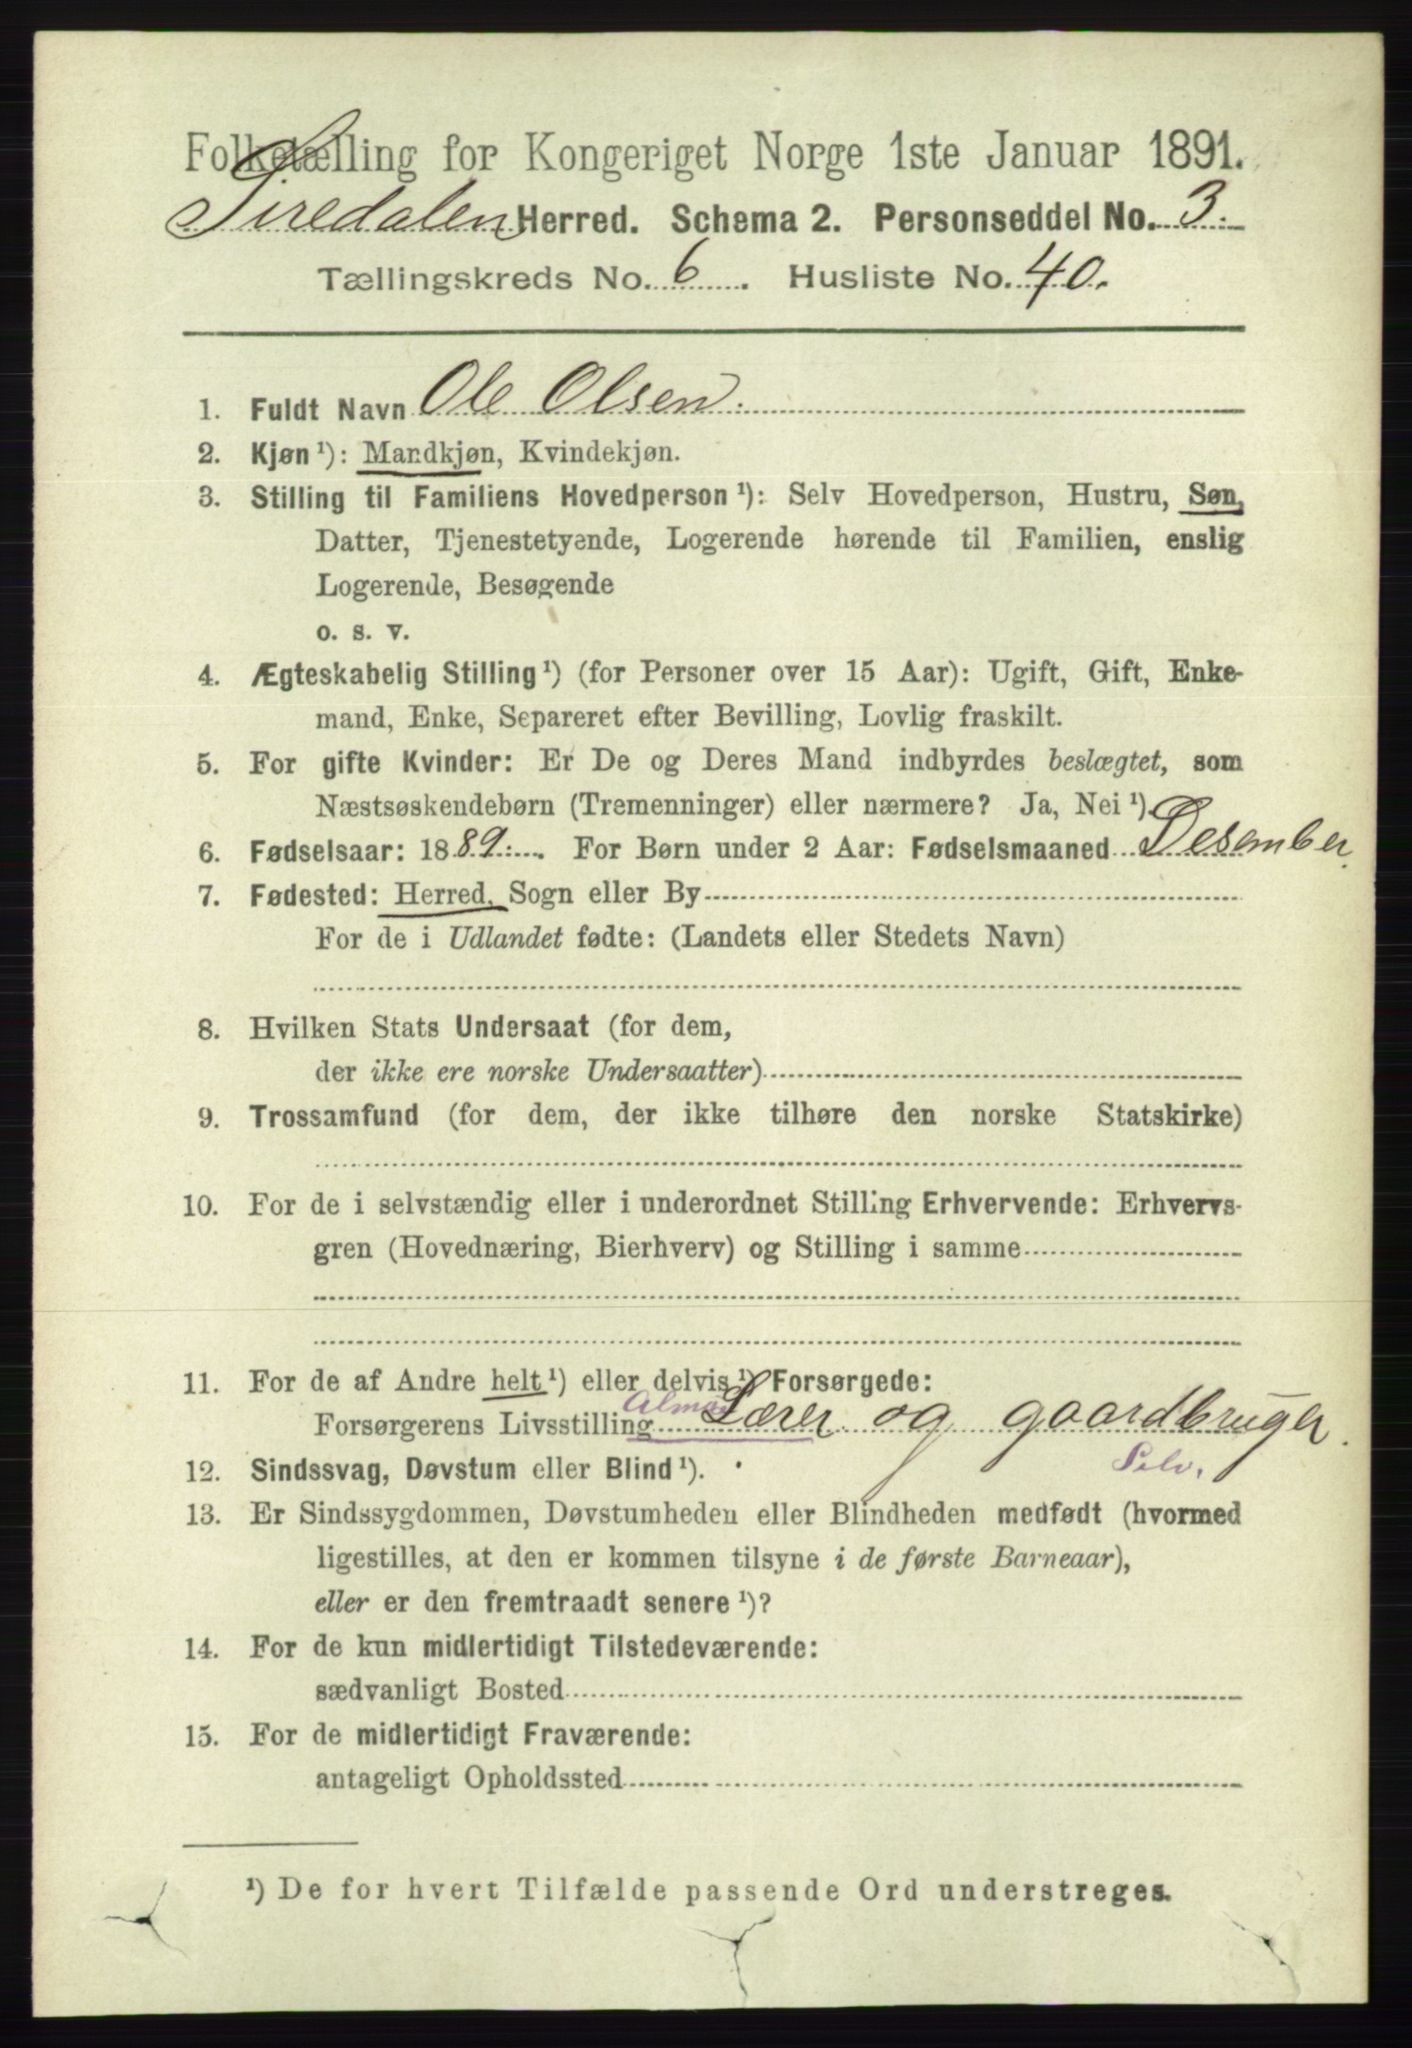 Folketælling for Kongeriget Norge 1ste Januar 1891.
Siredalen Herred. Schema 2. Personseddel No. 3.
Tællingskreds No. 6. Husliste No. 40.
1. Fuldt Navn Ole Olsen.
2. Kjøn ¹): Mandkjøn, Kvindekjøn.
3. Stilling til Familiens Hovedperson ¹): Selv Hovedperson, Hustru, Søn,
Datter, Tjenestetyende, Logerende hørende til Familien, enslig
Logerende, Besøgende
o. s. v.
4. Ægteskabelig Stilling ¹) (for Personer over 15 Aar): Ugift, Gift, Enke-
mand, Enke, Separeret efter Bevilling, Lovlig fraskilt.
5. For gifte Kvinder: Er De og Deres Mand indbyrdes beslægtet, som
Næstsøskendebørn (Tremenninger) eller nærmere? Ja, Nei ¹).
6. Fødselsaar: 1889. For Børn under 2 Aar: Fødselsmaaned Desember.
7. Fødested: Herred, Sogn eller By
For de i Udlandet fødte: (Landets eller Stedets Navn)
8. Hvilken Stats Undersaat (for dem,
der ikke ere norske Undersaatter)
9. Trossamfund (for dem, der ikke tilhøre den norske Statskirke)
10. For de i selvstændig eller i underordnet Stilling Erhvervende: Erhvervs-
gren (Hovednæring, Bierhverv) og Stilling i samme
11. For de af Andre helt ¹) eller delvis ¹) Forsørgede:
Forsørgerens Livsstilling Lærer og gaardbruger.
Selv.
12. Sindssvag, Døvstum eller Blind ¹).
13. Er Sindssygdommen, Døvstumheden eller Blindheden medfødt (hvormed
ligestilles, at den er kommen tilsyne i de første Barneaar),
eller er den fremtraadt senere ¹)?
14. For de kun midlertidigt Tilstedeværende:
sædvanligt Bosted
15. For de midlertidigt Fraværende:
antageligt Opholdssted
¹) De for hvert Tilfælde passende Ord understreges.